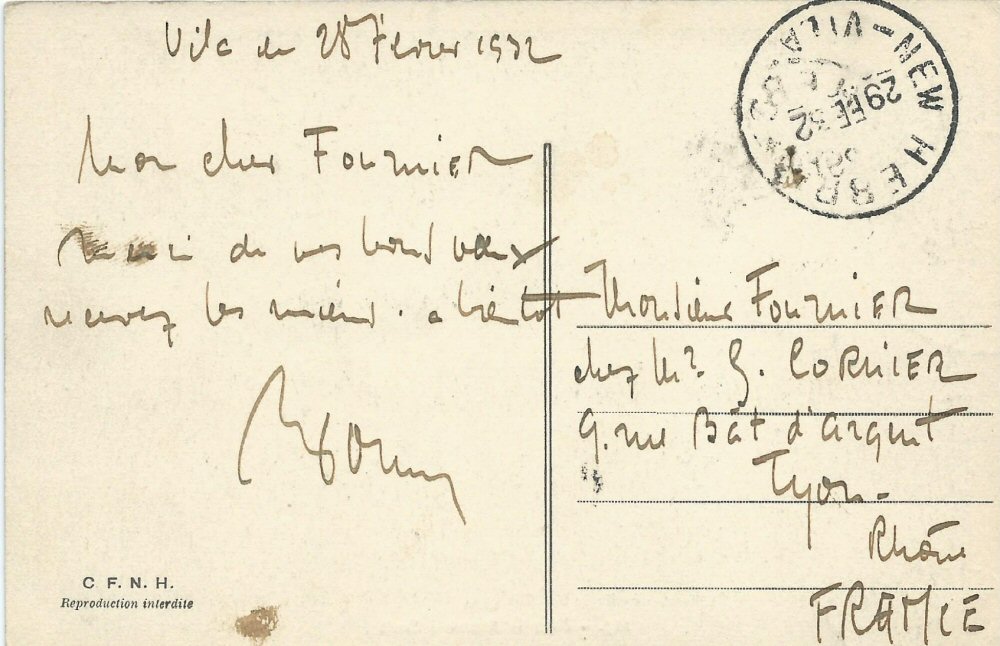 Vila le 28 Février 1932
Mon cher Fournier
merci de vos bons vœux
recevez les miens. a bientôt
C F. N. H.
Reproduction interdite
VILA - NEW HEBRI
29 FE 32
Monsieur FOURNIER
chez Mr. G. CORMIER
9. rue Bât d'argent
Lyon-
Rhône
FRANCE